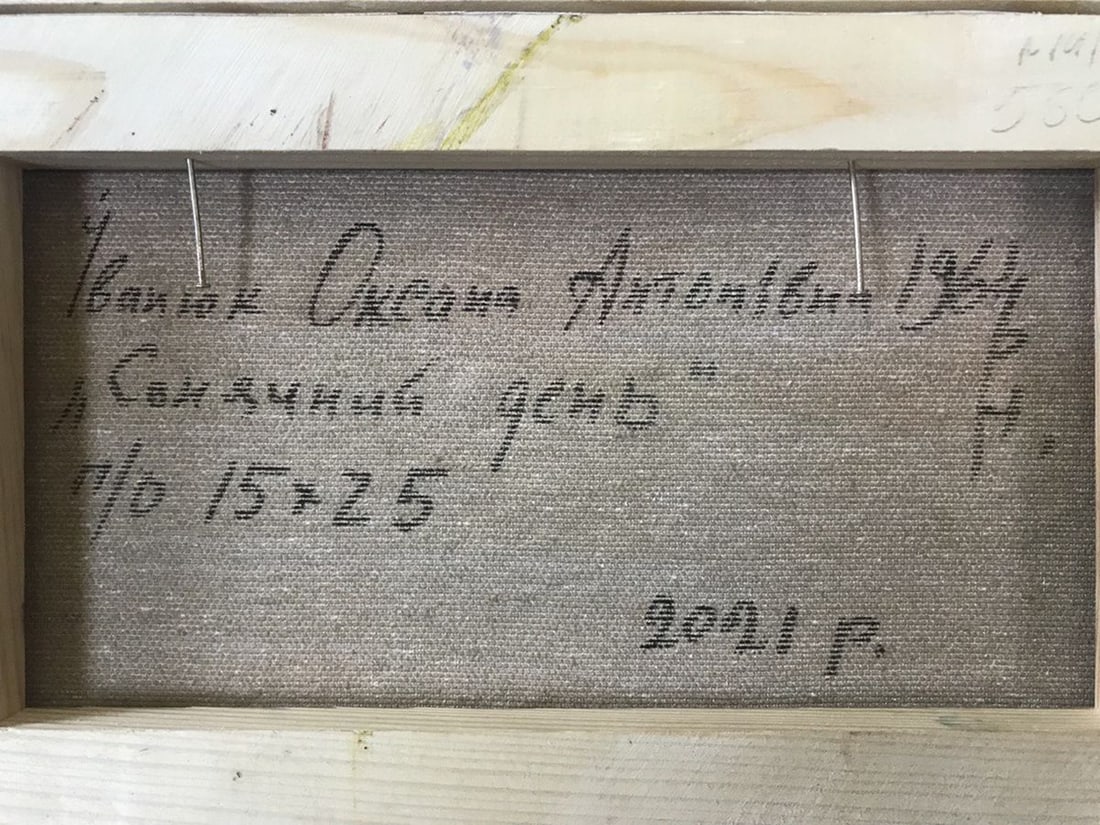 Іванюк Оксана Антонівна 1964
р
н.
„Сонячний день"
п/о 15×25
2021 р.